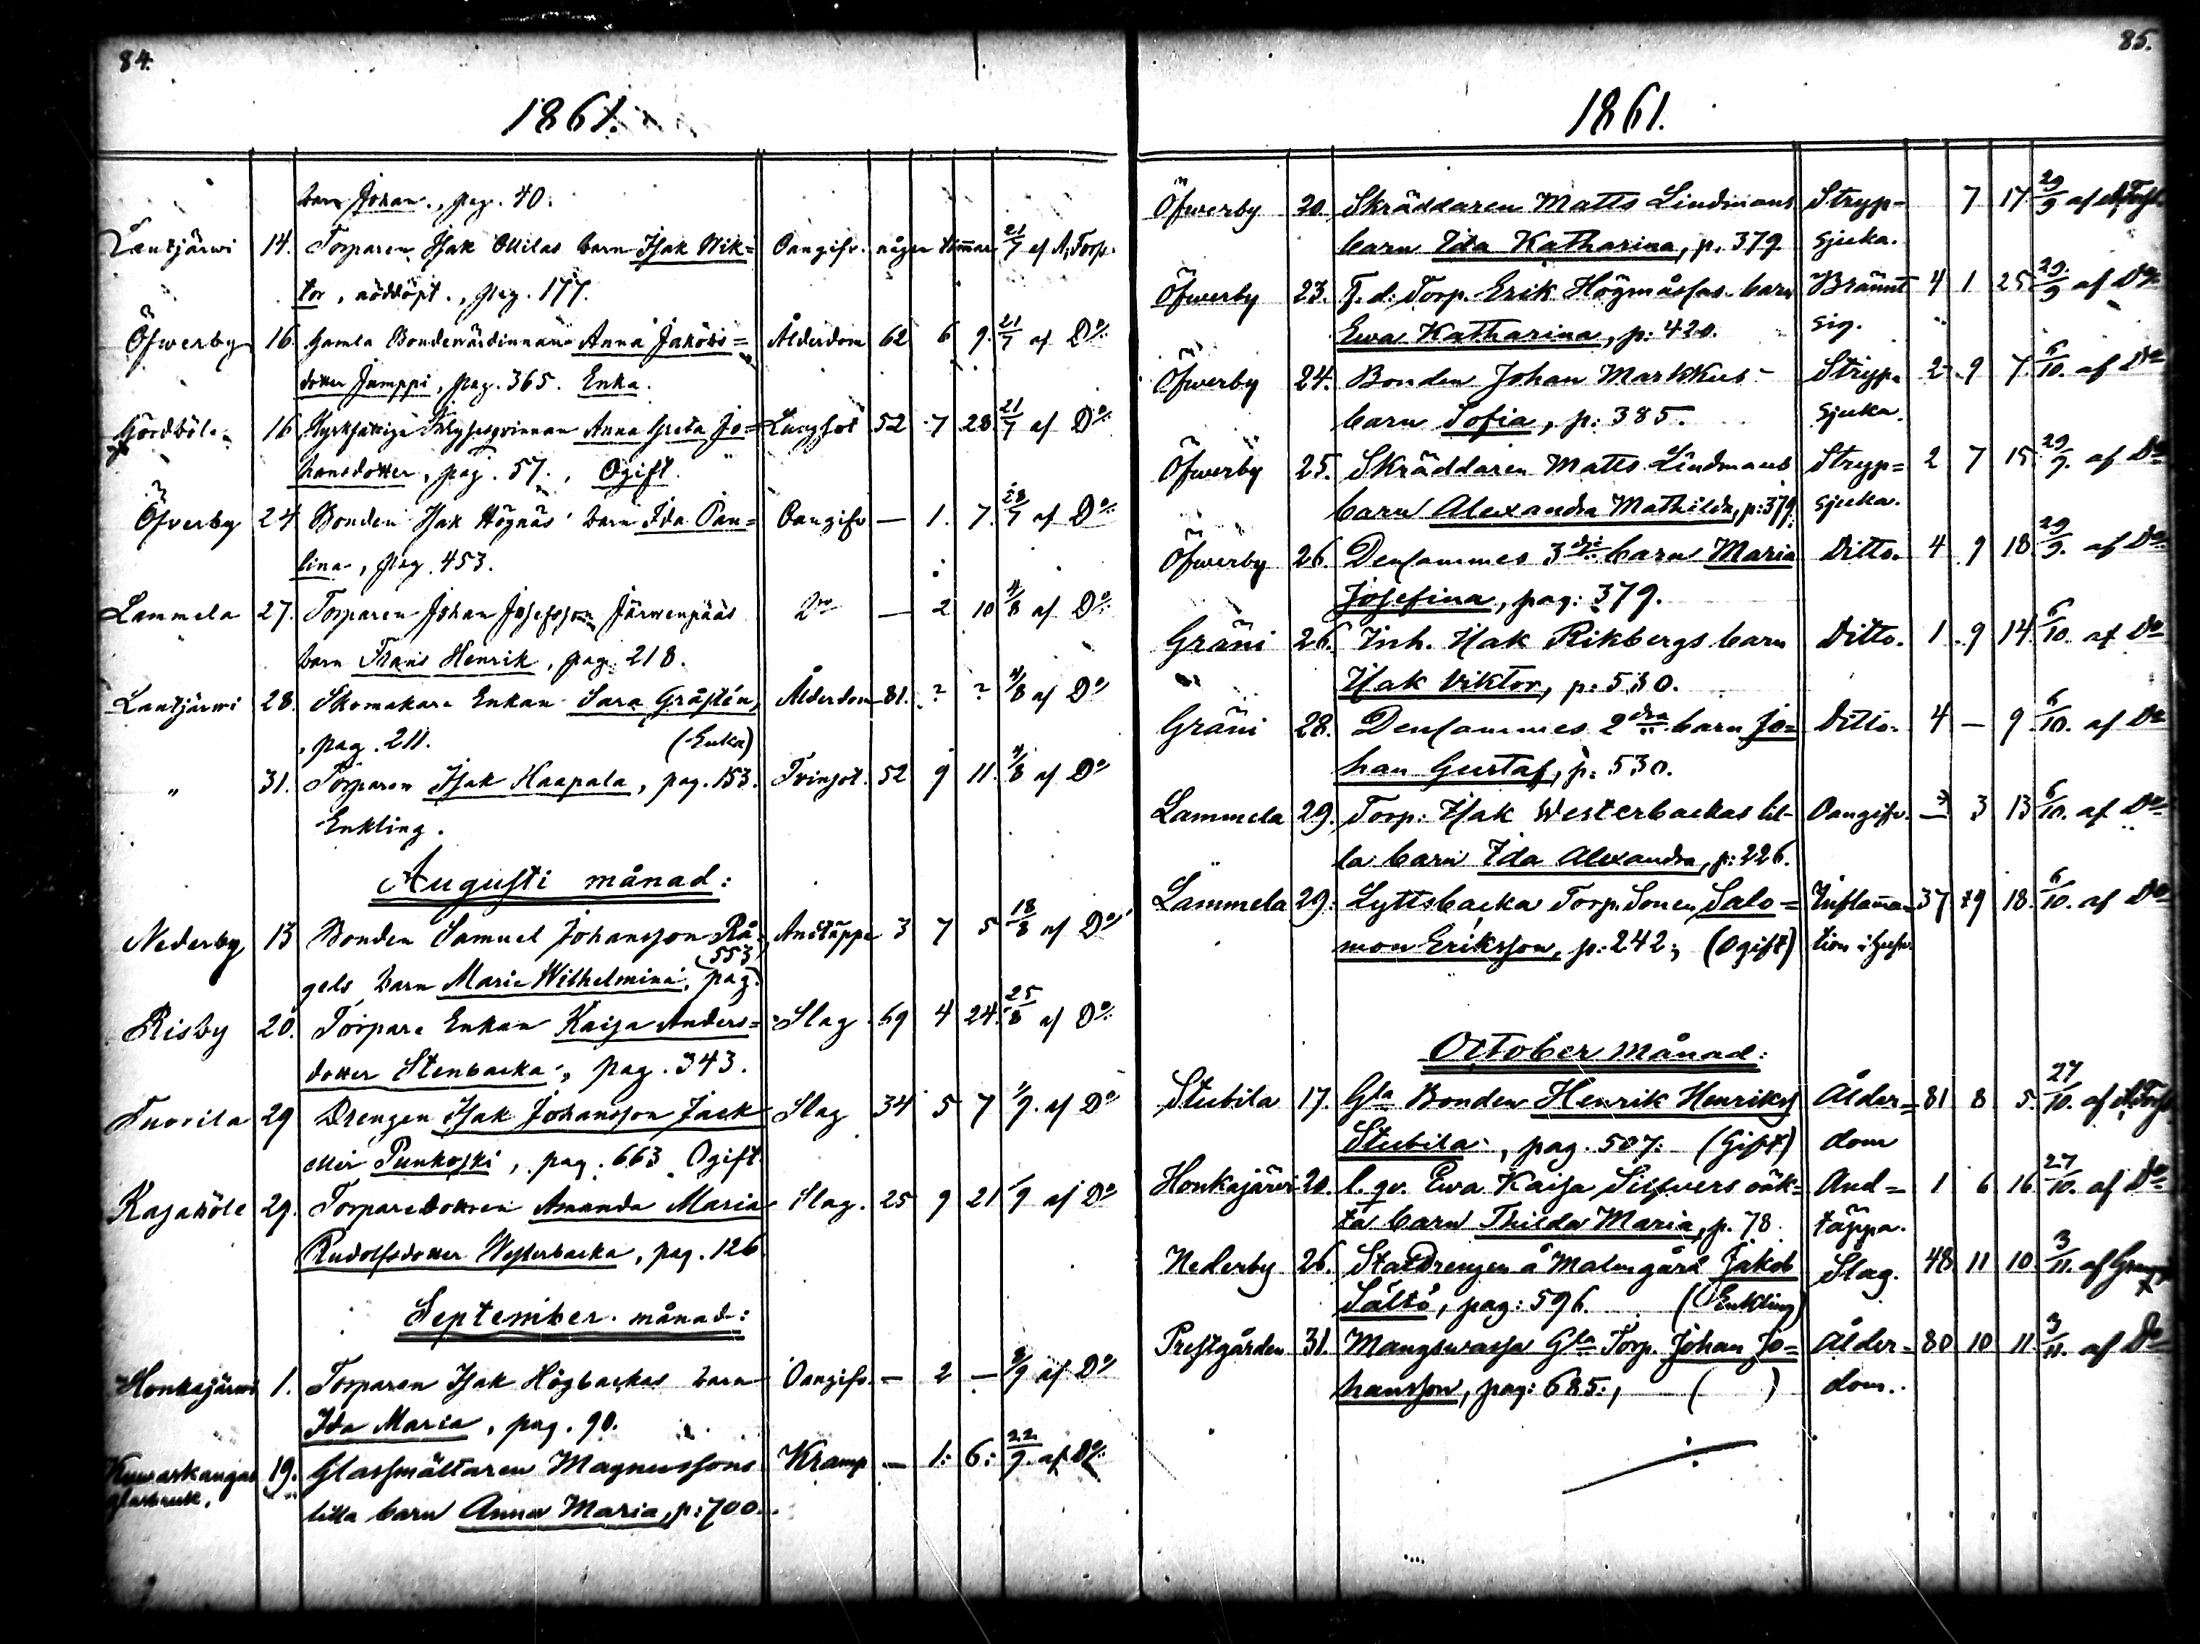 84.
1861.
barn Johan., pag. 40.
Lantjärwi 14. Torparen Isak Ollilas barn Isak Wik= Oangifv. några timmar 21/7 af A, Forss.
tor, nöddöpt., pag. 177.
Öfwerby 16. Gamla Bondewärdinnan Anna Jakobs= Ålderdom 62 6 9. 21/7 af Do
dotter Jamppi, pag. 365. Enka.
16 Kyrkfattiga Anna Greta Jo= Lungsot 52 7 28 21/7 af Do
hansdotter, pag. 57., Ogift.
Öfverby 24 Bonden Isak Högnäs barn Ida Pau= Oangifv — 1. 7. 28/7 af Do
lina, pag. 453.
Lammela 27. Torparen Johan Josefsson Järwenpääs Do — 2 10 4/8 af Do
barn Frans Henrik, pag. 218.
Lantjärwi 28. Skomakare Enkan Sara Gråsten, Ålderdom 81. ? ? 4/8 af Do
, pag. 211. (Enka)
" 31. Torparen Isak Haapala, pag. 153. Tvinsot. 52 9 11. 4/8 af Do
Enkling.
Augusti månad:
Nederby 13 Bonden Samuel Johansson Rå= Andtäppa 3 7 5 18/8 af Do
gels barn Maria Wilhelmina, pag. 553
Risby 20. Torpare Enkan Kaisa Anders= Slag 69 4 24. 25/8 af Do
dotter Stenbacka, pag. 343.
Tuorila 29 Drengen Isak Johansson Jack Slag 34 5 7 1/9. af Do
eller Punkoski, pag. 663. Ogift.
Kasaböle 29. Torparedottren Amanda Maria Slag. 25 9 21 1/9 af Do
Rudolfsdotter Westerbacka, pag. 126
September månad:
Honkajärwi 1. Torparen Isak Högbackas barn Oangifv. — 2 — 8/9 af Do
Ida Maria, pag. 90.
19. Glassmältaren Magnussons Kramp — 1: 6: 22/9. af Do
glasbruk. lilla barn Anna Maria, p: 700.
85.
1861.
Öfwerby 20. Skräddaren Matts Lindmans Stryp= 7 17 29/9 af A, Forss.
barn Ida Katharina, p. 379 sjuka.
Öfwerby 23. F. d. Torp. Erik Högmåsas barn Brännt 4 1 25 29/9 af Do
Ewa Katharina, p: 420. sig.
Öfwerby 24. Bonden Johan Markkus Stryp= 2 9 7. 6/10. af Do
barn Sofia, p: 385. sjuka.
Öfwerby 25. Skräddaren Matts Lindmans Stryp= 2 7 15. 29/9. af Do
barn Alexandra Mathilda, p: 379. sjuka.
Öfwerby 26. Densammes 3dje barn Maria Ditto. 4 9 18. 29/9. af Do
Josefina, pag: 379.
Gräni 26. Inh. Isak Rikbergs barn Ditto. 1 9 14. 6/10. af Do
Isak Viktor, p: 530.
Gräni 28. Densammes 2dra barn Jo= Ditto. 4 — 9 6/10. af Do
han Gustaf, p: 530.
Lammela 29. Torp: Isak Westerbackas lil- Oangifv. — 3 13 6/10. af Do
la barn Ida Alexandra, p: 226.
Lammela 29. Lyttsbacka Torp. Sonen Salo= Inflamma= 37 9 18. 6/10. af Do
mon Eriksson, p: 242; (Ogift) tion i
October månad:
Stubila 17. Gla Bonden Henrik Henriks Ålder= 81 8 5. 27/10. af A, Forss.
Stubila, pag. 507. (Gift) dom
Honkajärvi 20. l. qv. Ewa Kaisa Silfvers oäk= And= 1 6 16 27/10. af Do
ta barn Thilda Maria, p. 78. täppa.
Nederby 26. Statdrengen å Malmgård Jakob Slag. 48 11 10. 3/11. af
Sältö, pag: 596. (Enkling)
Prestgården 31. Gla Torp. Johan Jo= Ålder= 80 10 11 3/11. af Do
hansson, pag: 685., ( ) dom.